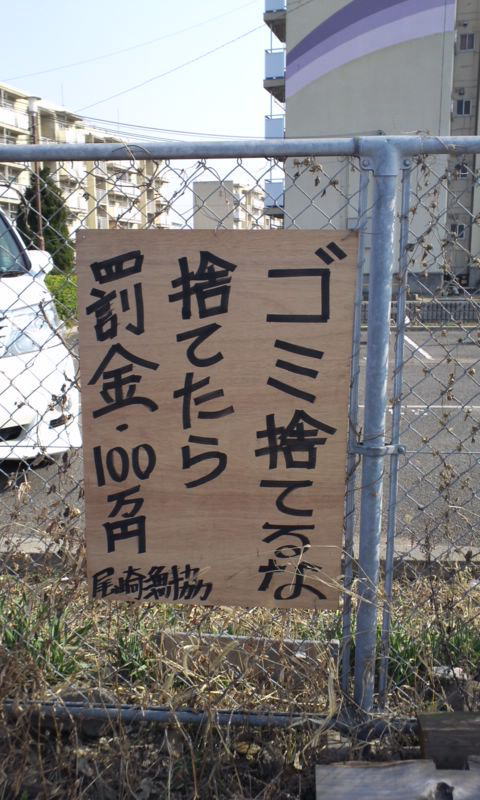 ゴミ捨てるな
捨てたら
罰金・100万円
尾崎魚協